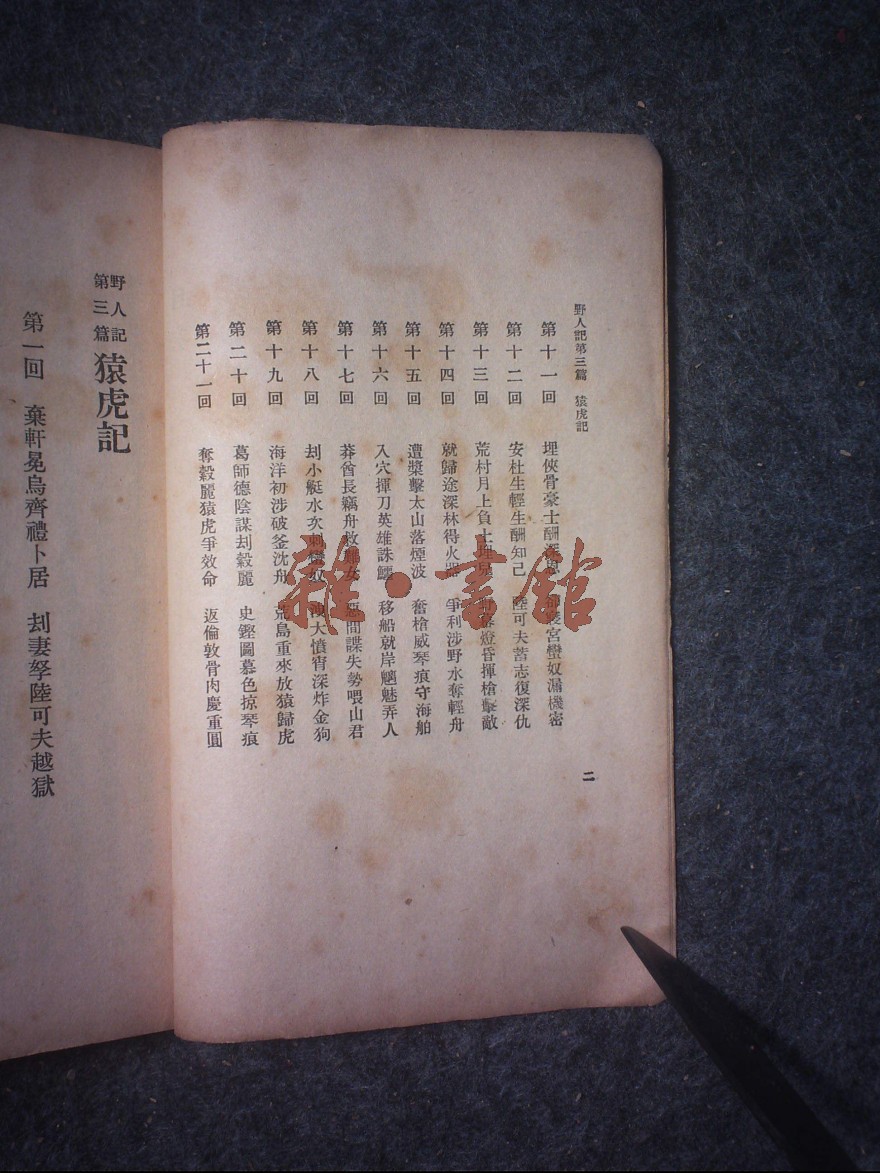 野人記第三篇　猿虎記
第十一回　埋俠骨豪士酬　宮蠻奴漏機密
第十二回　安杜生輕生酬知己　陸可夫蓄志復深仇
第十三回　荒村月上負土埋　燈昏揮槍擊敵
第十四回　就歸途深林得火器　爭利涉野水奪輕舟
第十五回　遭槳擊太山落煙波　奮槍威琴痕守海舶
第十六回　入穴揮刀英雄誅鱷　移船就岸魑魅弄人
第十七回　莽酋長竊舟救　女　惡間諜失勢喂山君
第十八回　刦小艇水次刺　奴　洩大憤宵深炸金狗
第十九回　海洋初涉破釜沈舟　荒島重來放猿歸虎
第二十回　葛師德陰謀刦毅麗　史鏗圖慕色掠琴痕
第二十一回　奪毅麗猿虎爭效命　返倫敦骨肉慶重圓
二
野人記第三篇　猿虎記
第一回　棄軒冕烏齊禮卜居　刦妻孥陸可夫越獄
雜·書館